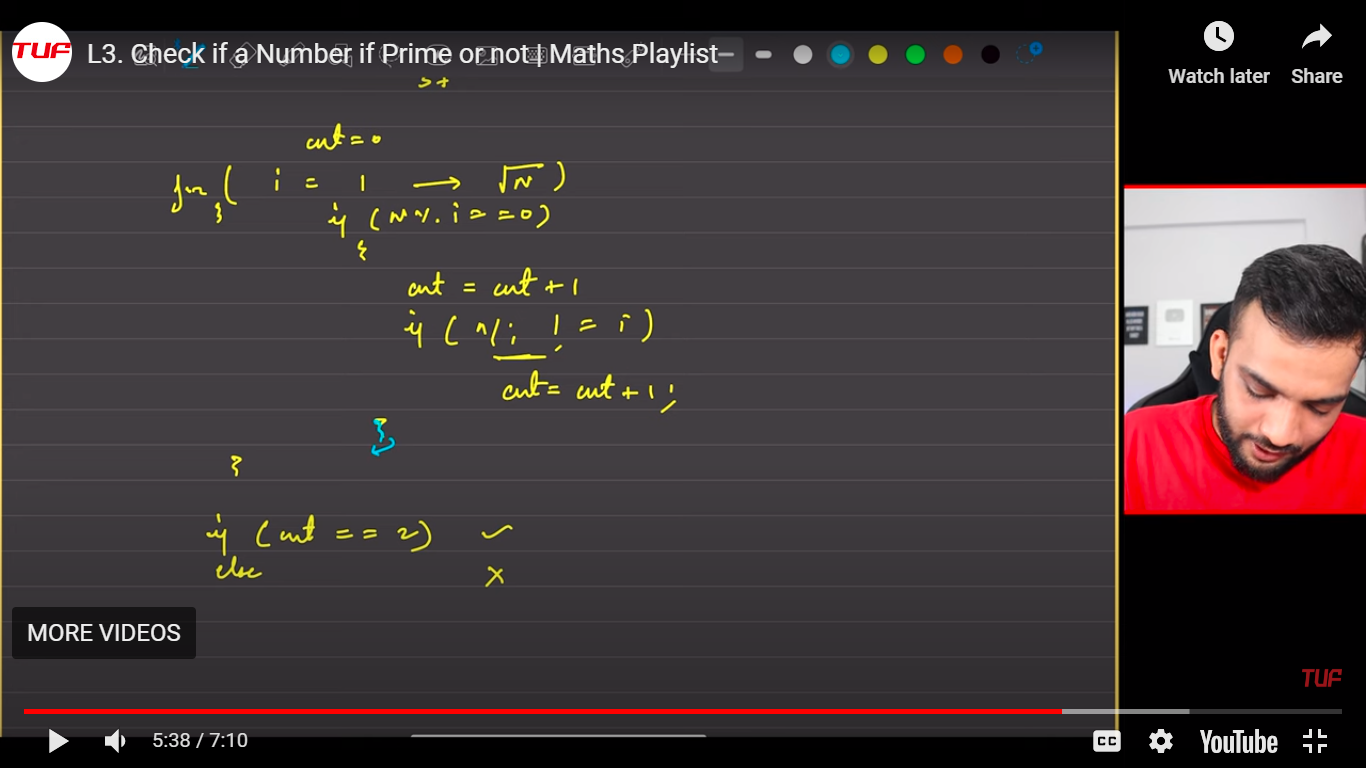 TUF L3. Check if a Number if Prime or not | Maths Playlist
Watch later Share
cnt = 0
for ( i = 1 → √N )
{ if ( N % i == 0 )
{
cnt = cnt + 1
if ( n/i != i )
cnt = cnt + 1;
}
}
if ( cnt == 2 ) ✓
else ×
MORE VIDEOS
TUF
5:38 / 7:10 CC YouTube